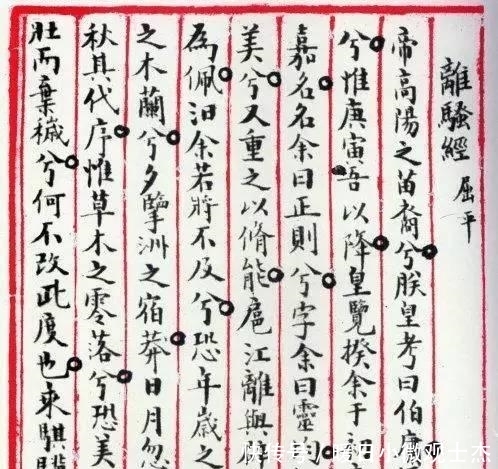 離騷經 屈平
帝高陽之苗裔兮朕皇考曰伯庸
兮惟庚寅吾以降皇覽揆余于
嘉名名余曰正則兮字余曰靈
美兮又重之以脩能扈江離與
為佩汩余若將不及兮恐年歲之
之木蘭兮夕擥洲之宿莽日月忽
秋其代序惟草木之零落兮恐美
壯而棄穢兮何不改此度也乘騏
快传号